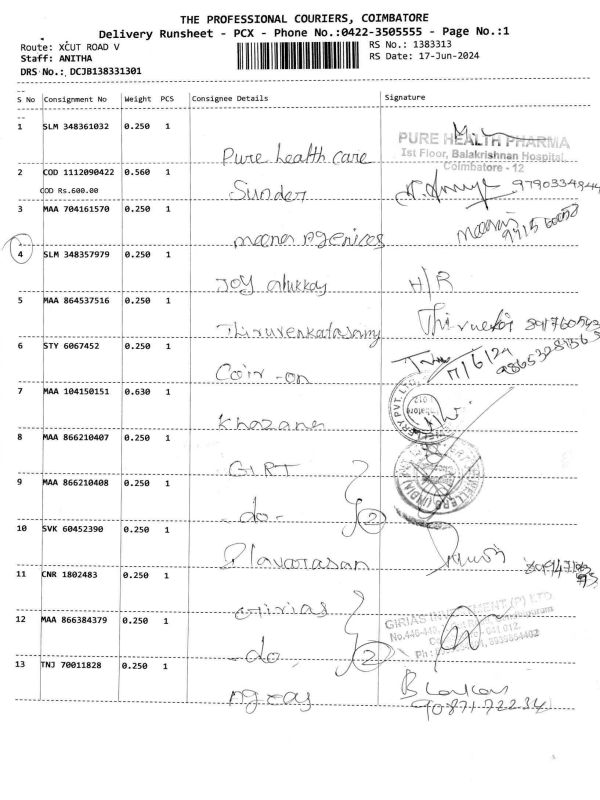 THE PROFESSIONAL COURIERS, COIMBATORE
Delivery Runsheet - PCX - Phone No.:0422-3505555 - Page No.:1
Route: XCUT ROAD V
Staff: ANITHA
DRS No.: DCJB138331301
RS No.: 1383313
RS Date: 17-Jun-2024
S No Consignment No Weight PCS Consignee Details Signature
1 SLM 348361032 0.250 1 Pure health care
PURE HEALTH PHARMA
Ist Floor, Balakrishnan Hospital,
Coimbatore - 12
2 COD 1112090422 0.560 1 Sunder
COD Rs.600.00
3 MAA 704161570 0.250 1
4 SLM 348357979 0.250 1 Joy H/R
5 MAA 864537516 0.250 1 Thiruvenkatasamy
6 STY 6067452 0.250 1 Coir-on 17/6/24
7 MAA 104150151 0.630 1 Khazana
8 MAA 866210407 0.250 1 GIRT
9 MAA 866210408 0.250 1 -do- 2
10 SVK 60452390 0.250 1
11 CNR 1802483 0.250 1 Girias
12 MAA 866384379 0.250 1 -do 2
13 TNJ 70011828 0.250 1
9087172234